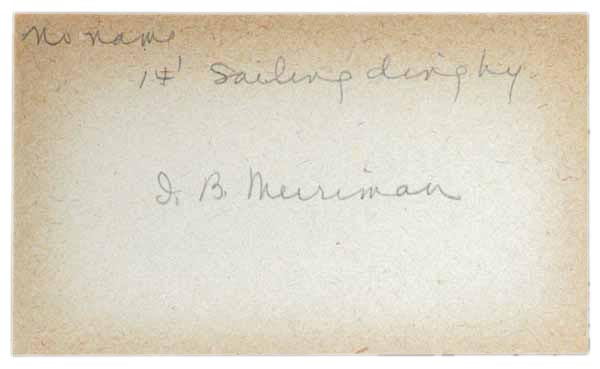 No name
14' Sailing dinghy.
I. B. Merriman